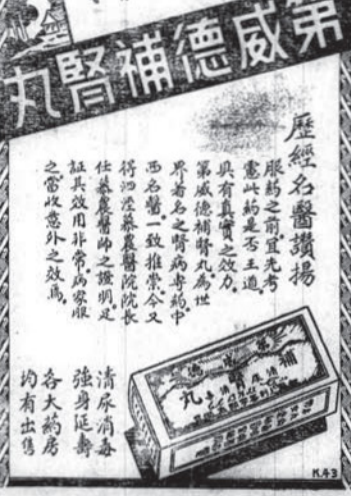 第威德補腎丸
歷經名醫讚揚
服藥之前宜先考
慮此藥是否王道
具有真實之效力
第威德補腎丸為世
界著名之腎病專藥中
西名醫一致推崇今又
得泗涇暴農醫院院長
任暴農醫師之證明足
証其效用非常病家服
之當收意外之效焉
清尿消毒
強身延壽
各大藥房
均有出售
第威德
補腎丸
K.43